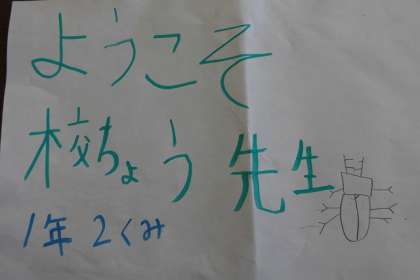 ようこそ
校ちょう先生
1年2くみ